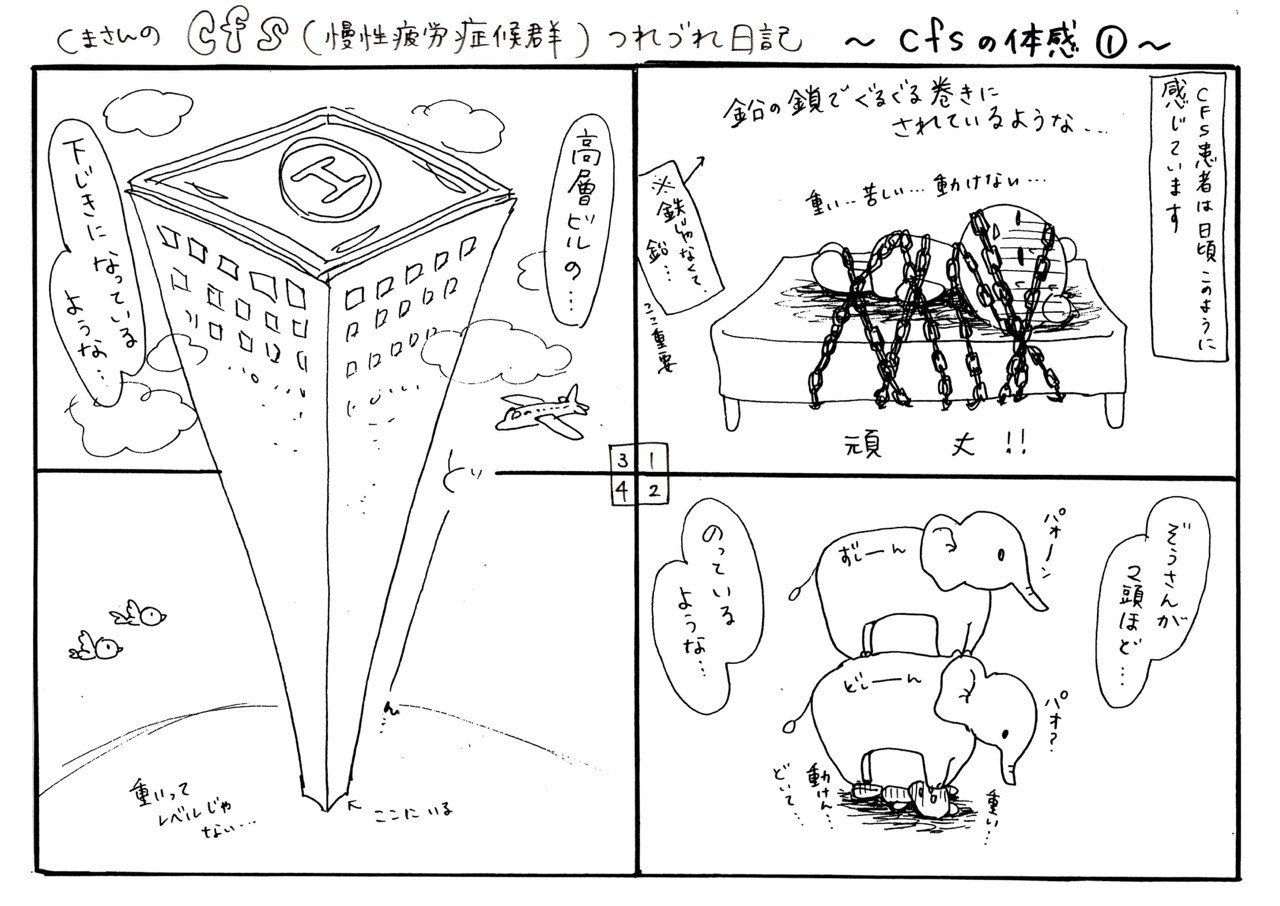 くまさんの cfs (慢性疲労症候群) つれづれ日記 ～ cfsの体感① ～
CFS患者は日頃このように
感じています
鉛の鎖でぐるぐる巻きに
されているような...
※鉄じゃなくて、
鉛...
ここ重要
重い...苦しい...動けない...
頑丈!!
1
2
3
4
ぞうさんが
2頭ほど...
パオーン
ずしーん
のっている
ような...
どしーん
パオ?
重い...
動けん...
どいて...
高層ビルの...
下じきになっている
ような...
H
どーん...
ここにいる
重いって
レベルじゃ
ない...